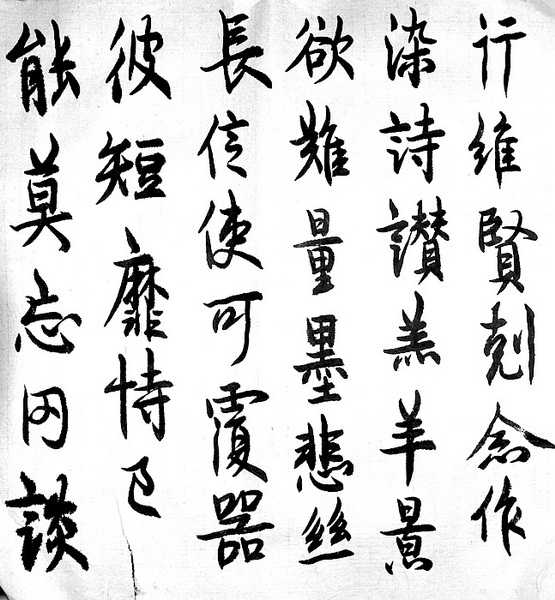 能莫忘罔談
彼短靡恃己
長信使可覆器
欲難量墨悲絲
染詩讃羔羊景
行維賢剋念作